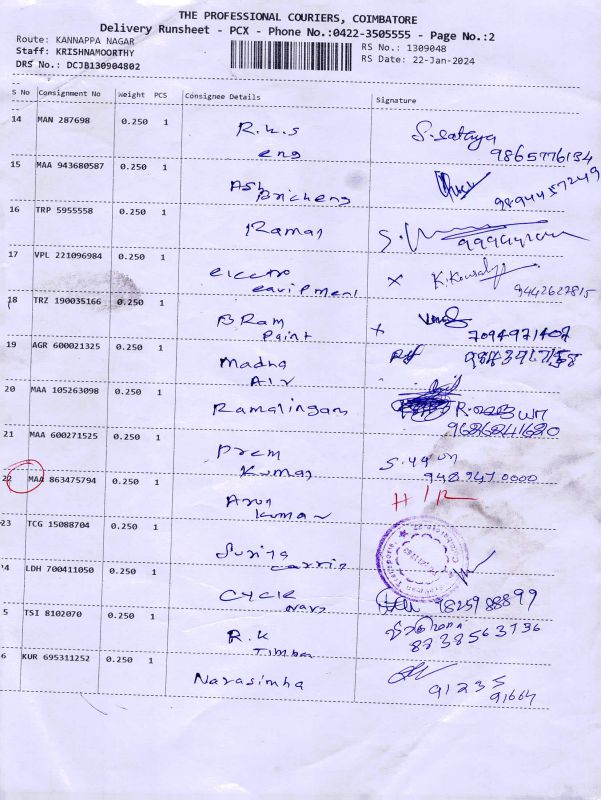 THE PROFESSIONAL COURIERS, COIMBATORE
Delivery Runsheet - PCX - Phone No.:0422-3505555 - Page No.:2
Route: KANNAPPA NAGAR
RS No.: 1309048
Staff: KRISHNAMOORTHY
RS Date: 22-Jan-2024
DRS No.: DCJB130904802
S No Consignment No Weight PCS Consignee Details Signature
14 MAN 287698 0.250 1 R.K.S S. Sathya
eng 9865776134
15 MAA 943680587 0.250 1 Ash
9894457249
16 TRP 5955558 0.250 1 Raman
17 VPL 221096984 0.250 1 electro x
eavipment 9442627815
18 TRZ 190035166 0.250 1 B.Ram x
Paint 7094971407
19 AGR 600021325 0.250 1 Madna
Air
20 MAA 105263098 0.250 1 Ramalingam
9626241620
21 MAA 600271525 0.250 1 Prem
Kumar 948 947 0000
22 MAA 863475794 0.250 1 Arun H/R
Kumar
23 TCG 15088704 0.250 1
4 LDH 700411050 0.250 1 Cycle 9825988899
5 TSI 8102070 0.250 1 R.K 8738563736
Timber
6 KUR 695311252 0.250 1 Narasimha 91235
91664